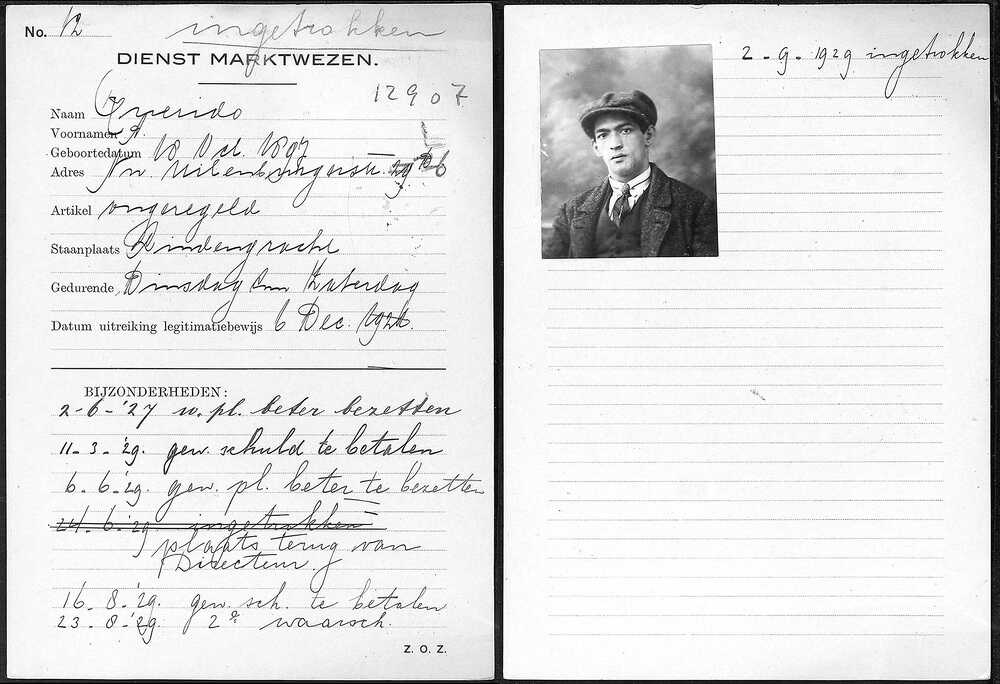 No. 12 ingetrokken
DIENST MARKTWEZEN.
12907
Naam Querido
Voornamen A.
Geboortedatum 18 Oct. 1897
Adres Nw. Uilenburgerstr. 29 b
Artikel ongeregeld
Staanplaats Lindengracht
Gedurende Dinsdag Zaterdag
Datum uitreiking legitimatiebewijs 6 Dec. 1921.
BIJZONDERHEDEN:
2-6-'27 w. pl. beter bezetten
11-3-'29. gew. schuld te betalen
6-6-'29. gew. pl. beter te bezetten
24-6-'29 ingetrokken
plaats terug van
Directeur.
16-8-'29. gew. sch. te betalen
23-8-'29. 2e waarsch.
Z. O. Z.
2-9-1929 ingetrokken